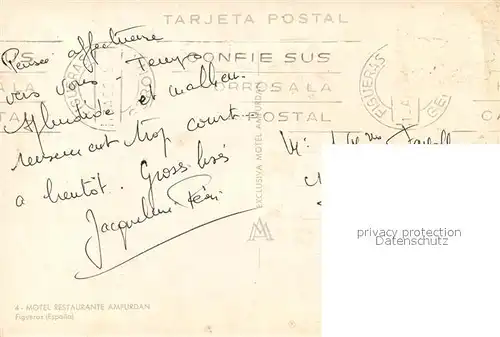 TARJETA POSTAL
Pensée affectueuse
vers vous - Temps
splendide et malheu-
reusement trop court...
a bientôt. Gross bises
Jacqueline
CONFIE SUS
ORROS A LA
POSTAL
FIGUERAS
EXCLUSIVA MOTEL AMPURDAN
privacy protection
Datenschutz
4 - MOTEL RESTAURANTE AMPURDAN
Figueras (España)